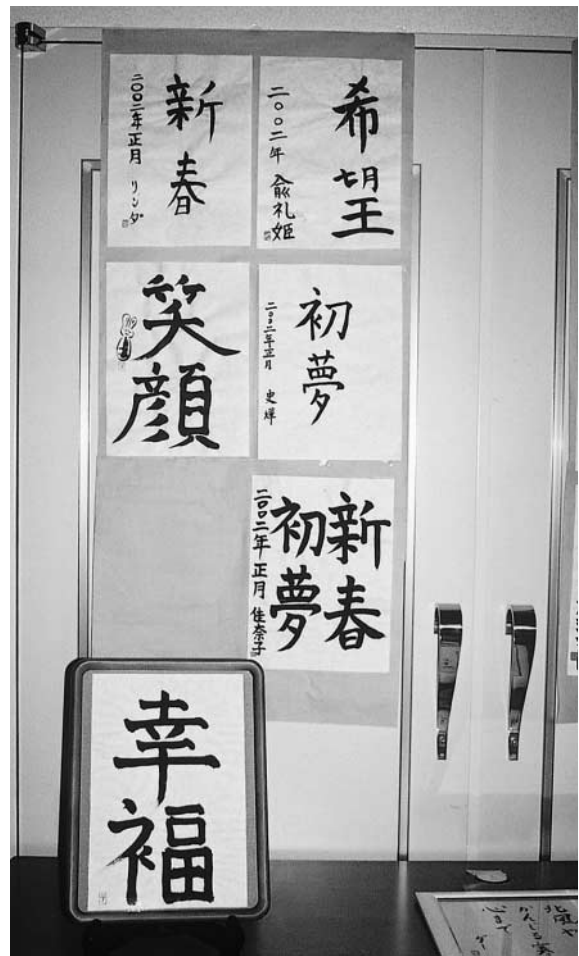 希望
二〇〇二年 兪礼姫
新春
二〇〇二年正月 リンダ
初夢
二〇〇二年正月 史輝
笑顔
新春
初夢
二〇〇二年 正月 佳奈子
幸福